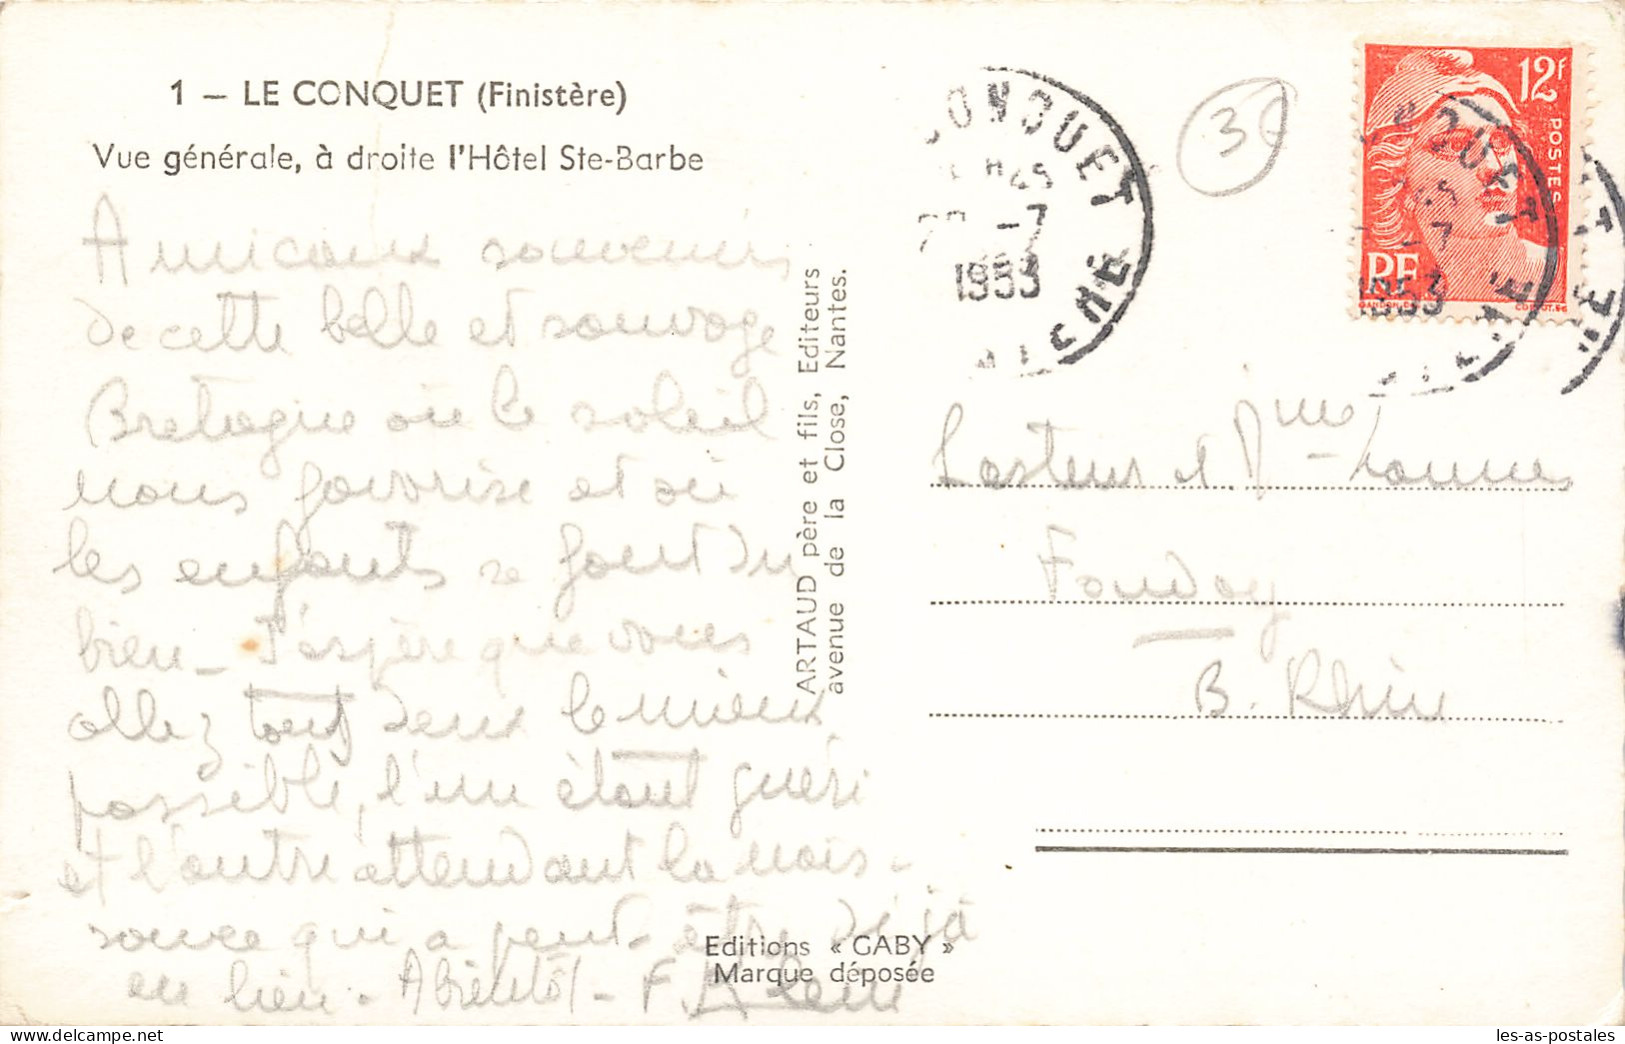 1 – LE CONQUET (Finistère)
Vue générale, à droite l'Hôtel Ste-Barbe
Amicaux souvenirs
de cette belle et sauvage
Bretagne où le soleil
nous favorise et où
les enfants se font du
bien – J'espère que vous
allez tous deux le mieux
possible, l'un étant guéri
et l'autre attendant la nais-
sance qui a peut-être déjà
eu lieu. A bientôt – F.
ARTAUD père et fils, Editeurs
avenue de la Close, Nantes.
Editions « GABY »
Marque déposée
CONQUET
-7
1953
30
12F
POSTES
RF
CONQUET
-7
1953
Pasteur et Mme
Fouday
B. Rhin
les-as-postales